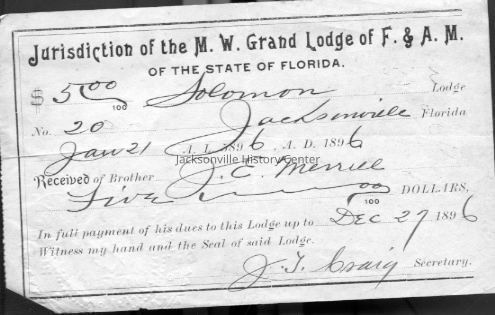 Jurisdiction of the M. W. Grand Lodge of F. & A. M.
OF THE STATE OF FLORIDA.
$ 5 00/100 Solomon Lodge
No. 20 Jacksonville Florida
Jan 21 A. L. 5896, A. D. 1896
Jacksonville History Center
Received of Brother J. C. Merrill
Five 00/100 DOLLARS,
In full payment of his dues to this Lodge up to Dec 27 1896
Witness my hand and the Seal of said Lodge.
J. T. Craig Secretary.